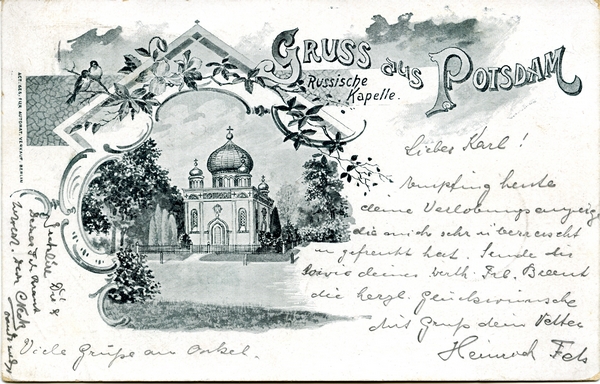 GRUSS aus POTSDAM
Russische
Kapelle.
ACT. GES. FÜR AUTOMAT. VERKAUF, BERLIN
Lieber Karl!
Empfing heute
deine Verlobungsanzeige
die mich sehr überrascht
u gefreut hat. Sende dir
sowie deiner werth. Frl. Braut
die herzl. Glückwünsche
Mit Gruß dein Vetter
Heinrich
Viele Grüße an Onkel.